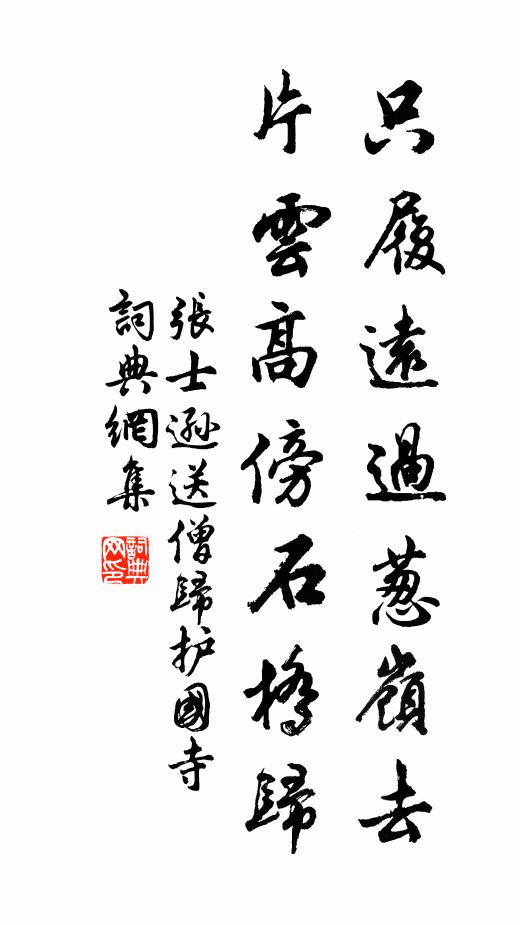 只履遠過葱嶺去
片雲高傍石橋歸
張士遜送僧歸护國寺
詞典網集
詞典网印